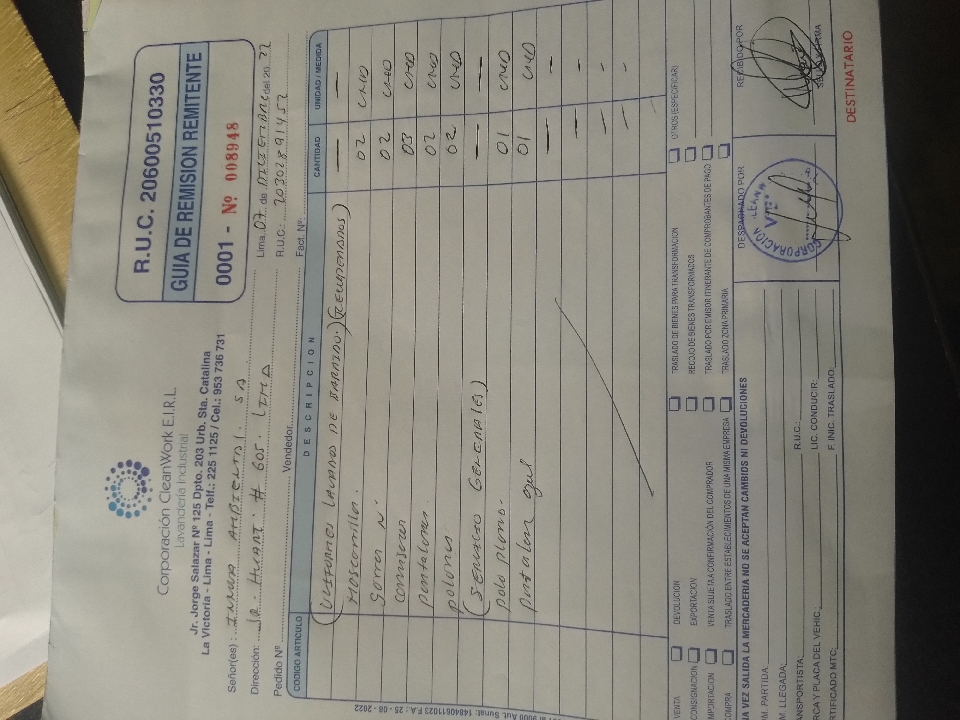 Corporación CleanWork E.I.R.L.
Lavandería Industrial
Jr. Jorge Salazar Nº 125 Dpto. 203 Urb. Sta. Catalina
La Victoria - Lima - Telf.: 225 1125 / Cel.: 953 736 731
R.U.C. 20600510330
GUIA DE REMISION REMITENTE
0001 - Nº 008948
Señor(es): INNOVA AMBIENTAL SA
Lima, 07 de DICIEMBRE del 20 22
Dirección: JR. HUARI # 605. LIMA
R.U.C.: 20302891452
Pedido Nº Vendedor Fact. Nº
CODIGO ARTICULO DESCRIPCION CANTIDAD UNIDAD / MEDIDA
(UNIFORMES LAVANDO DE BARRIDO.)
Mascarillas. 02 UND
Gorra N. 02 UND
Camisera 03 UND
pantalones 02 UND
polones 02 UND
(SERVICIO GENERALES)
polo plomo. 01 UND
pantalon azul 01 UND
VENTA
CONSIGNACION
IMPORTACION
COMPRA
DEVOLUCION
EXPORTACION
VENTA SUJETA A CONFIRMACIÓN DEL COMPRADOR
TRASLADO ENTRE ESTABLECIMIENTOS DE UNA MISMA EMPRESA
TRASLADO DE BIENES PARA TRANSFORMACION
RECOJO DE BIENES TRANSFORMADOS
TRASLADO POR EMISOR ITINERANTE DE COMPROBANTES DE PAGO
TRASLADO ZONA PRIMARIA
OTROS (ESPECIFICAR)
NA VEZ SALIDA LA MERCADERÍA NO SE ACEPTAN CAMBIOS NI DEVOLUCIONES
M. PARTIDA:
M. LLEGADA:
ANSPORTISTA: R.U.C.:
RCA Y PLACA DEL VEHIC.: LIC. CONDUCIR:
RTIFICADO MTC: F. INIC. TRASLADO:
DESPACHADO POR
CORPORACION CLEANW
RECIBIDO POR
DESTINATARIO